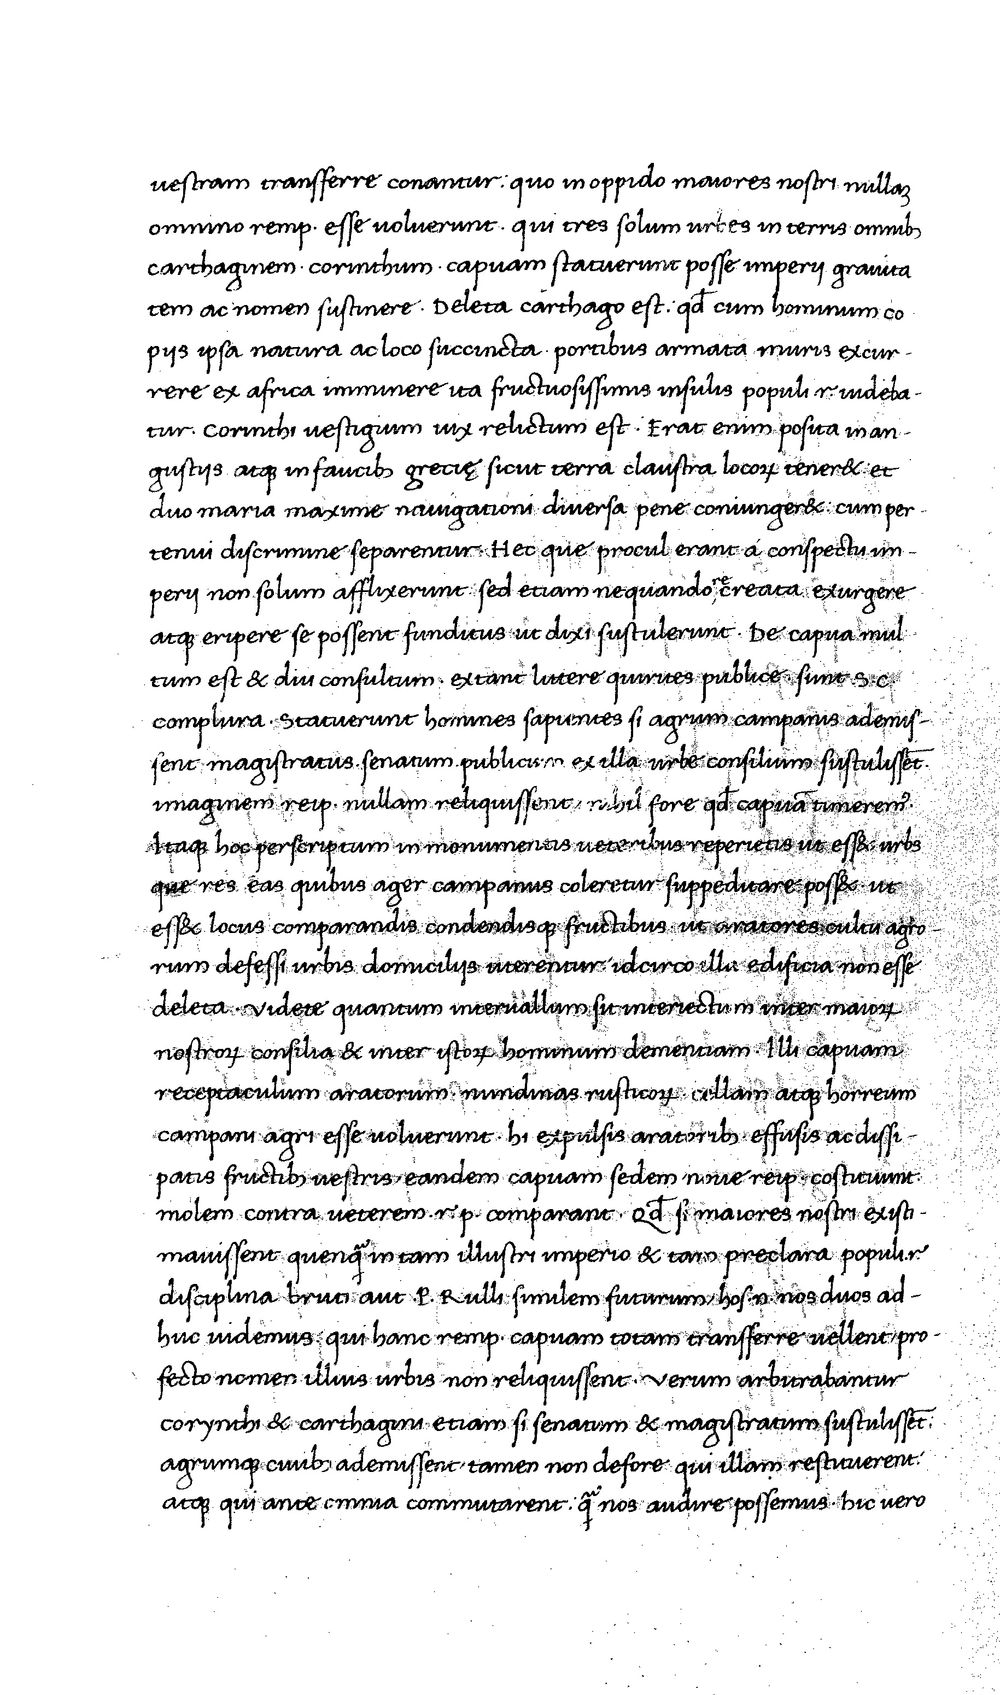 uestram transferre conantur: quo in oppido maiores nostri nullaꝫ
omnino remp. esse uoluerunt. qui tres solum urbes in terris omnibꝫ
carthaginem. corinthum. capuam statuerunt posse imperij grauita
tem ac nomen sustinere. Deleta carthago est: qđ cum hominum co
pijs ipsa natura ac loco succincta. portibus armata muris excur-
rere ex africa imminere ita fructuosissimis insulis populi r. uideba-
tur. Corinthi uestigium uix relictum est. Erat enim posita in an-
gustijs atqꝫ in faucibꝫ grecię sicut terra claustra locoꝝ tener& et
duo maria maxime nauigationi diuersa pene coniunger&: cum per-
tenui discrimine separentur. Hec que procul erant a conspectu im-
perij non solum afflixerunt sed etiam ne quando recreata exurgere
atqꝫ eripere se possent funditus ut dixi sustulerunt. De capua mul
tum est & diu consultum. extant littere quirites publice. sunt S. C.
complura. Statuerunt homines sapientes si agrum campanis ademis-
sent magistratus. senatum. publicum ex illa urbe consilium sustulissēt.
imaginem reip. nullam reliquissent, nihil fore qđ capuā timerem⁹.
Itaqꝫ hoc perscriptum in monumentis ueteribus reperietis ut ess& urbs
que res eas quibus ager campanus coleretur suppeditare poss&. ut
ess& locus comparandis condendisqꝫ fructibus. ut aratores cultu agro-
rum defessi urbis domicilijs uterentur. idcirco illa edificia non esse
deleta. Videte quantum interuallum sit interiectum inter maioꝝ
nostroꝝ consilia & inter istoꝝ hominum dementiam. Illi capuam
receptaculum aratorum. nundinas rusticoꝝ. cellam atqꝫ horreum
campani agri esse uoluerunt. hi expulsis aratoribꝫ. effusis ac dissi-
patis fructibꝫ uestris, eandem capuam sedem noue reip. costituunt.
molem contra ueterem. r. p. comparant. Qđ si maiores nostri existi-
mauissent quenqᷓ in tam illustri imperio & tam preclara populi.r.
disciplina bruti aut P. Rulli similem futurum, hos. n. nos duos ad-
huc uidemus: qui hanc remp. capuam totam transferre uellent, pro-
fecto nomen illius urbis non reliquissent. Verum arbitrabantur
corynthi & carthagini etiam si senatum & magistratum sustulissēt.
agrumqꝫ ciuibꝫ ademissent tamen non defore qui illam restituerent.
atqꝫ qui ante omnia commutarent. qᷓ nos audire possemus. hic uero